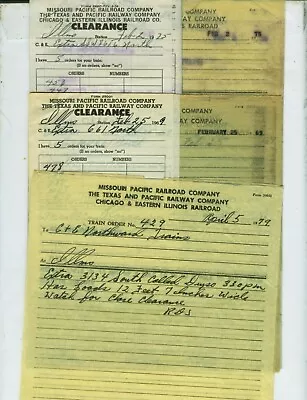 MISSOURI PACIFIC RAILROAD COMPANY
THE TEXAS AND PACIFIC RAILWAY COMPANY
CHICAGO & EASTERN ILLINOIS RAILROAD CO.
CLEARANCE
Station Feb 2 1975
C.&E. Extra North
I have 5 orders for your train.
(If no orders, show "no)
ORDERS NUMBERS
COMPANY
WAY COMPANY
RAILROAD
FEB 2 75
MISSOURI PACIFIC RAILROAD COMPANY
THE TEXAS AND PACIFIC RAILWAY COMPANY
CHICAGO & EASTERN ILLINOIS RAILROAD CO.
CLEARANCE
Station Feb 25 1969
C.&E. Extra 661 North
I have 5 orders for your train.
(If no orders, show "no)
ORDERS NUMBERS
498
COMPANY
WAY COMPANY
RAILROAD
FEBRUARY 25 69
MISSOURI PACIFIC RAILROAD COMPANY
THE TEXAS AND PACIFIC RAILWAY COMPANY
CHICAGO & EASTERN ILLINOIS RAILROAD
TRAIN ORDER No. 429 April 5 1979
To C&E Northward Trains
At
Extra 3134 South Called 330pm
Has Loads 12 Feet 7 Inches Wide
Watch for Close Clearance